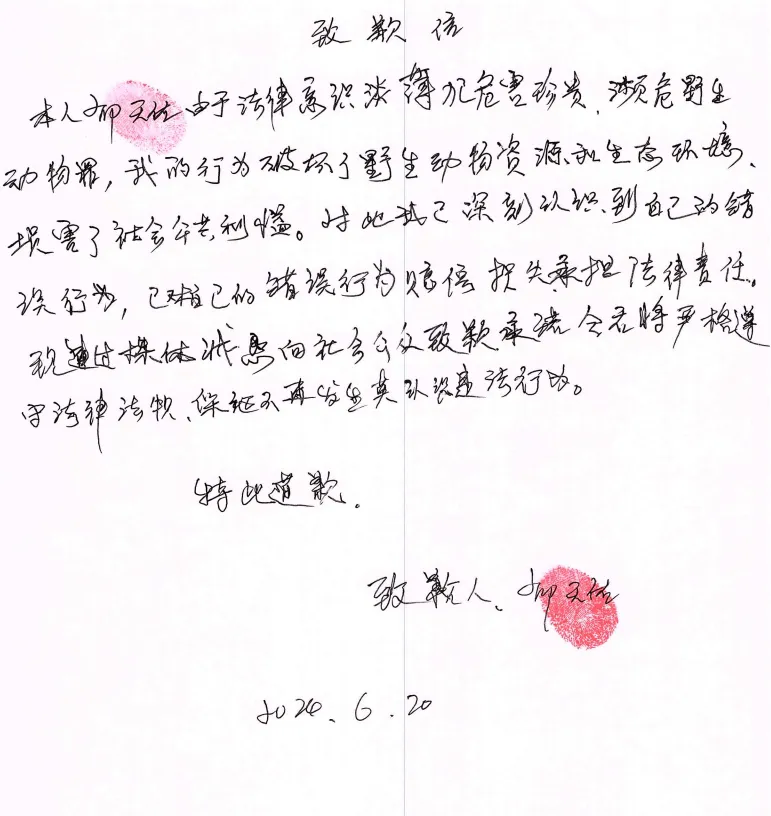 致歉信
本人 天 由于法律意识淡薄犯危害珍贵、濒危野生
动物罪，我的行为破坏了野生动物资源和生态环境、
损害了社会公共利益。对此我已深刻认识到自己的错
误行为，已对自己的错误行为赔偿损失承担法律责任。
现通过媒体我愿向社会公众致歉承诺今后将严格遵
守法律法规、保证不再发生其 违法行为。
特此道歉.
致歉人、 天
2024.6.20